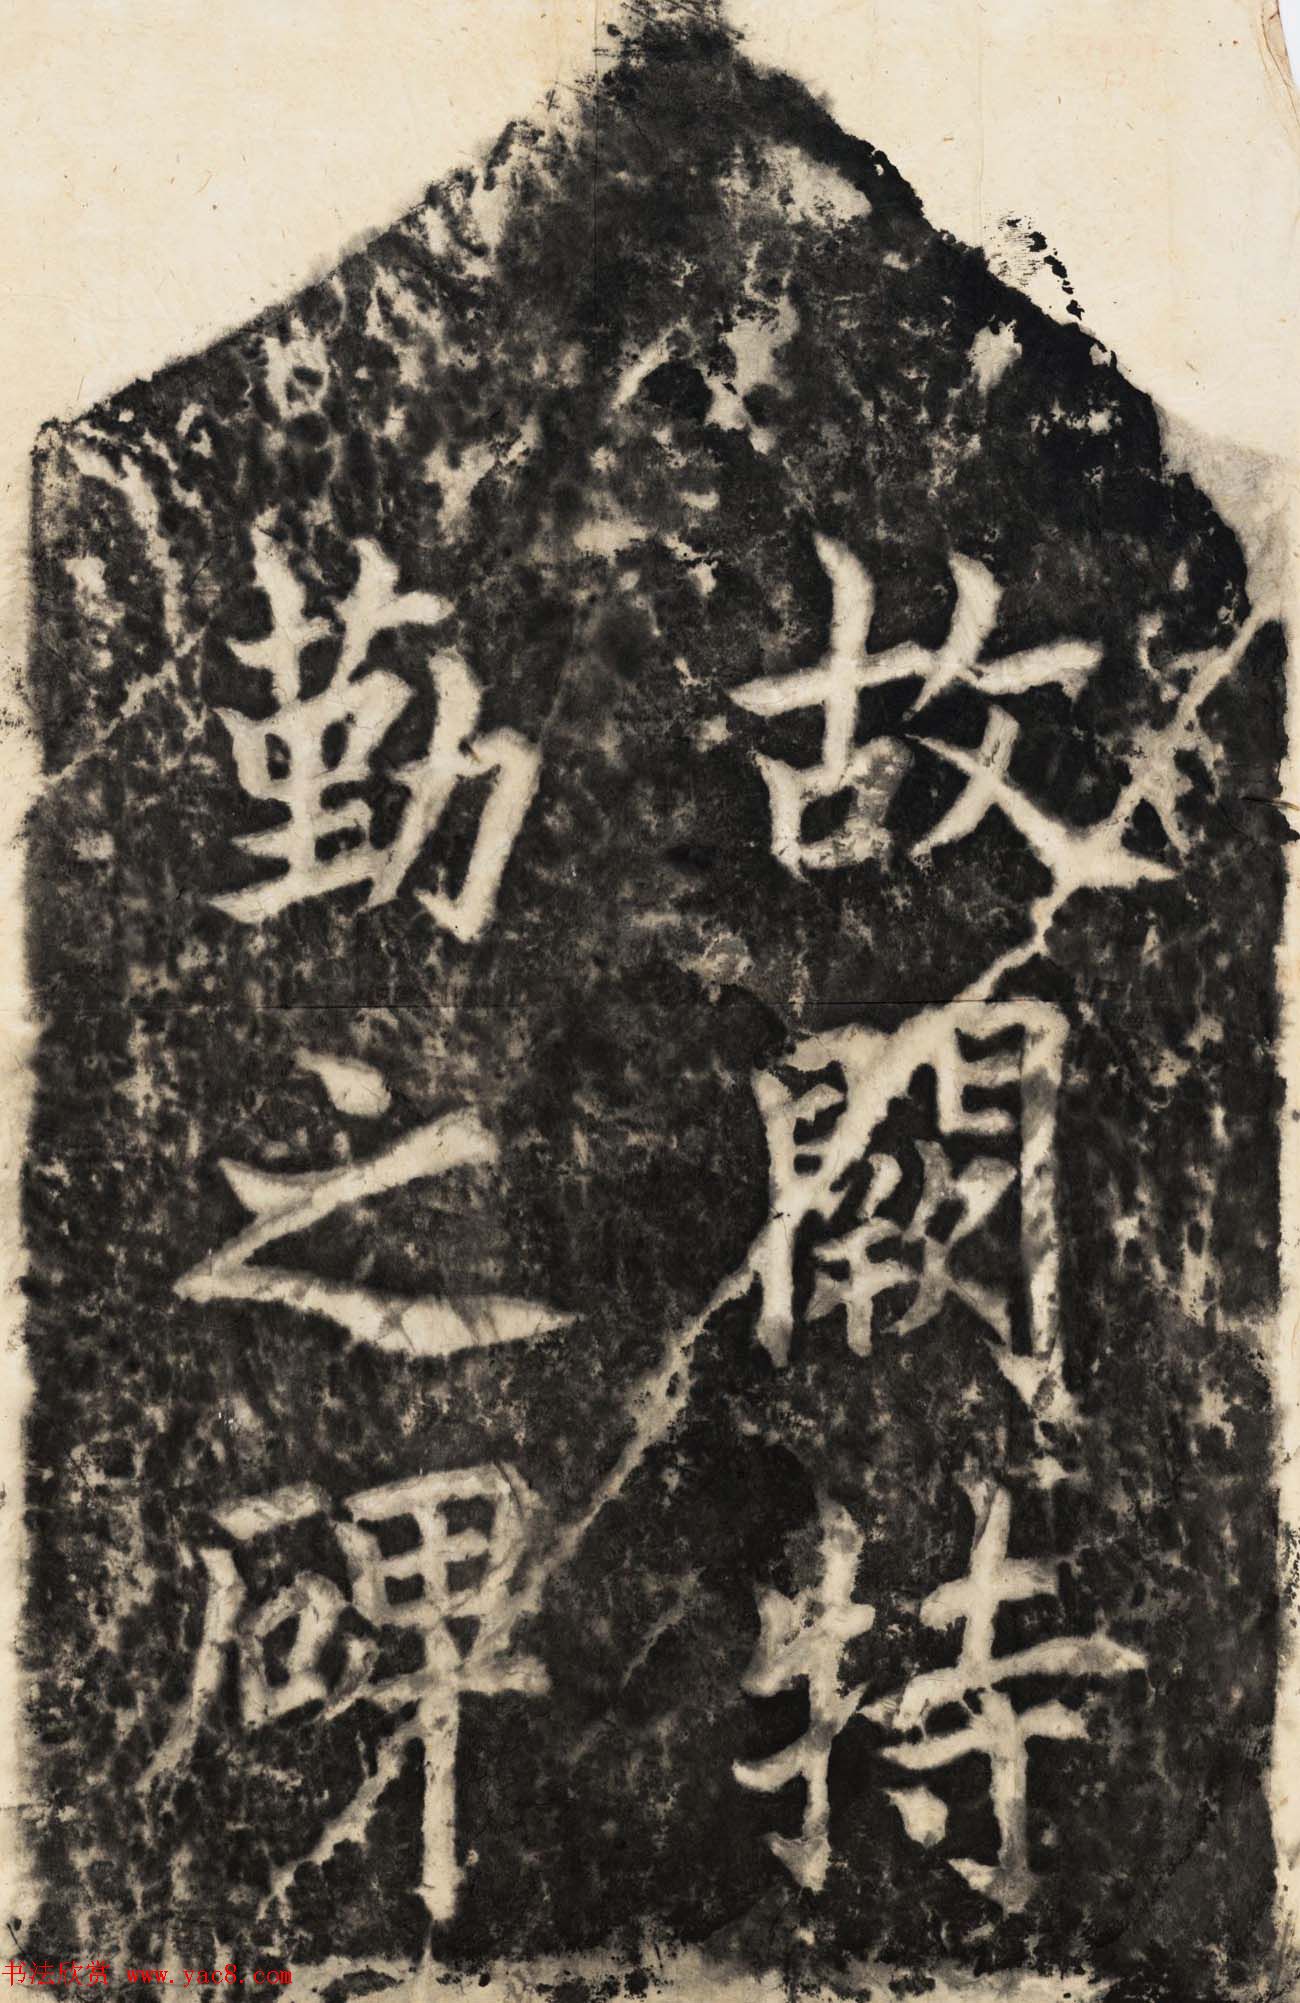 故闕特
勤之碑
书法欣赏 www.yac8.com